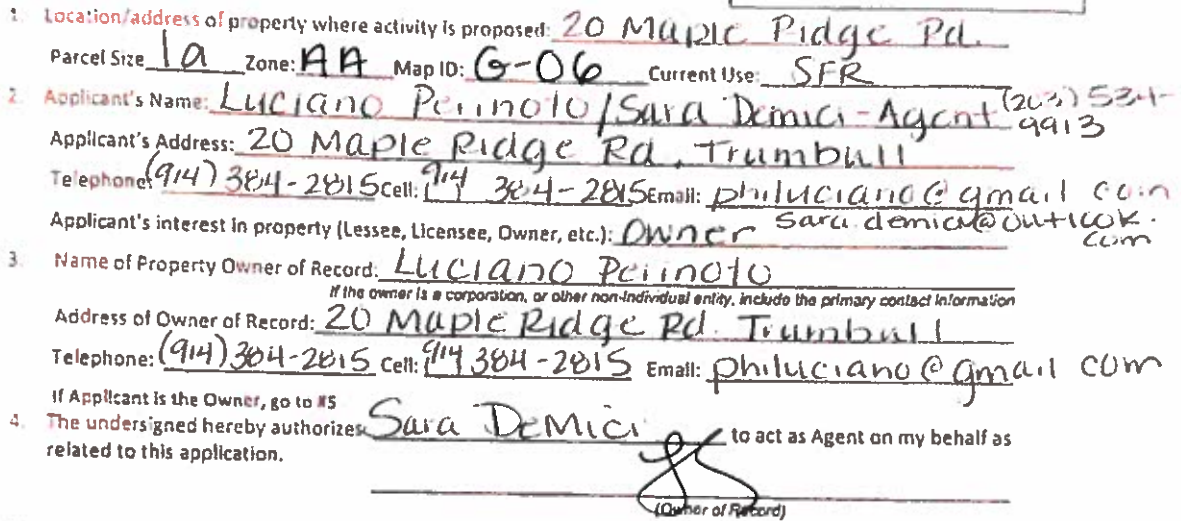 1. Location/address of property where activity is proposed: 20 Maple Ridge Rd.
Parcel Size 1a Zone: AA Map ID: G-06 Current Use: SFR
2. Applicant's Name: Luciano Perinoto / Sara Demici - Agent (203) 534-9913
Applicant's Address: 20 Maple Ridge Rd, Trumbull
Telephone: (914) 384-2815 Cell: 914 384-2815 Email: philuciano@gmail com
sara.demici@outlook.com
Applicant's interest in property (Lessee, Licensee, Owner, etc.): Owner
3. Name of Property Owner of Record: Luciano Perinoto
If the owner is a corporation, or other non-individual entity, include the primary contact information
Address of Owner of Record: 20 Maple Ridge Rd. Trumbull
Telephone: (914) 384-2815 Cell: 914 384-2815 Email: philuciano@gmail com
If Applicant is the Owner, go to #5
4. The undersigned hereby authorizes Sara DeMici to act as Agent on my behalf as
related to this application.
(Owner of Record)